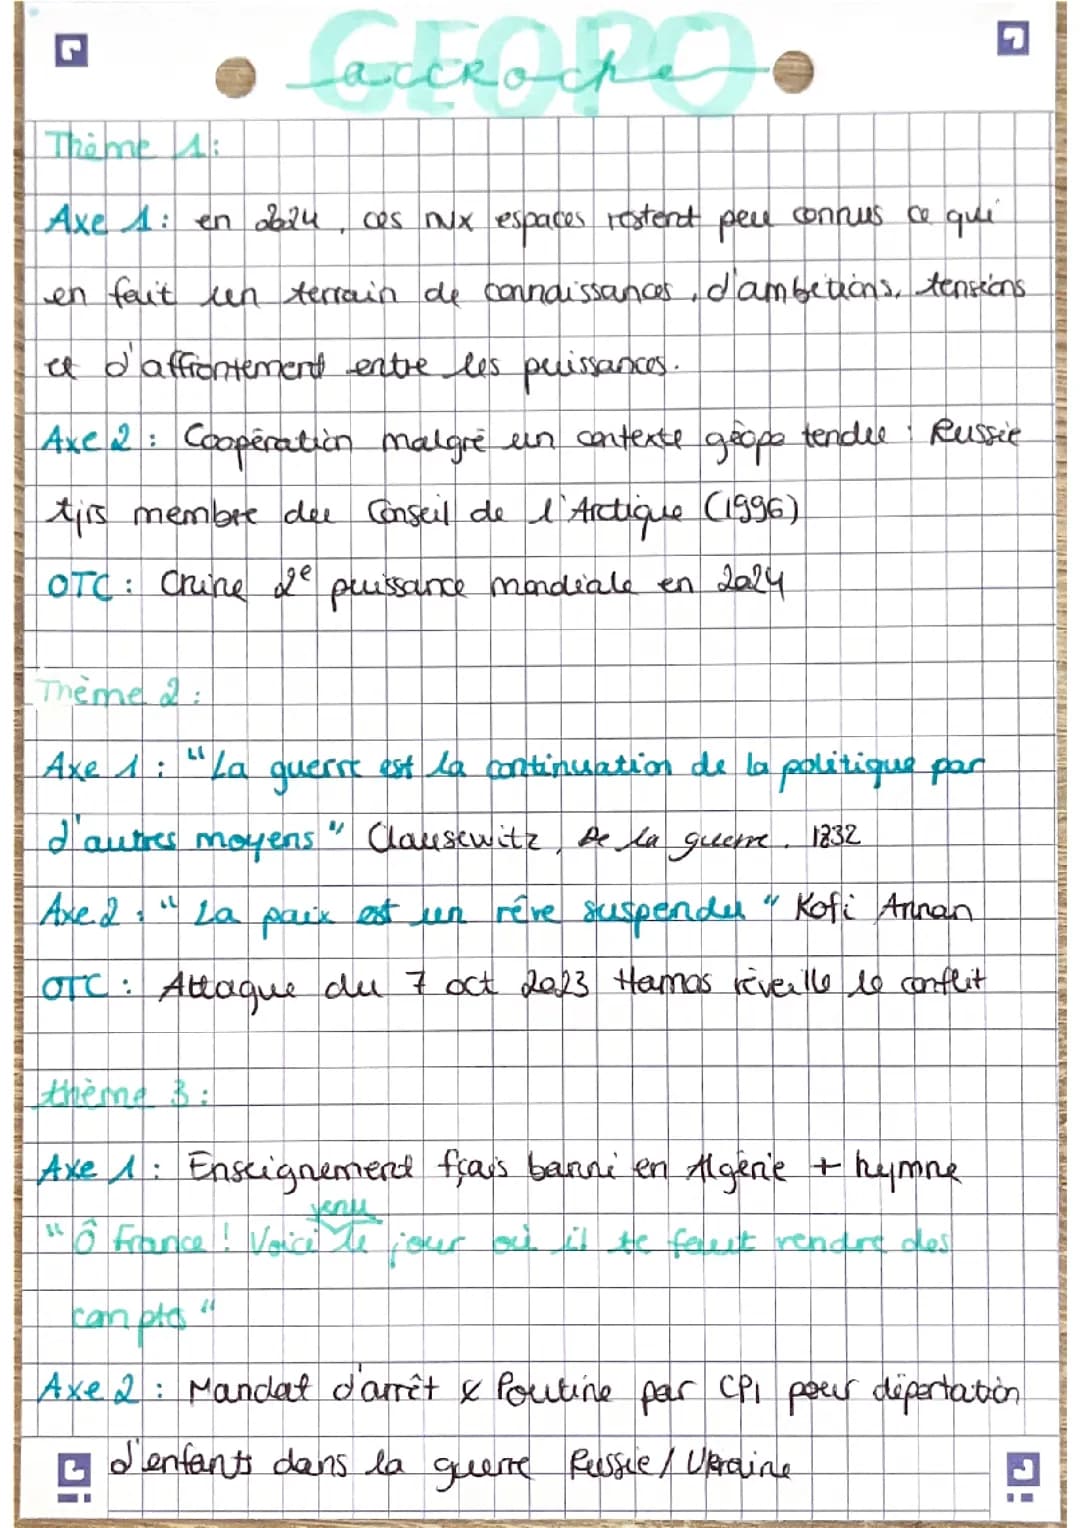 GEOPO
accroche
Thème 1:
Axe 1: en 2024, ces nvx espaces restent peu connus ce qui
en fait un terrain de connaissances, d'ambitions, tensions
et d'affrontement entre les puissances.
Axe 2 : Coopération malgré un contexte géopo tendu : Russie
tjrs membre du Conseil de l'Arctique (1996)
OTC : Chine 2e puissance mondiale en 2024
Thème 2 :
Axe 1 : "La guerre est la continuation de la politique par
d'autres moyens" Clausewitz, De la guerre. 1832
Axe 2 : "La paix est un rêve suspendu" Kofi Annan
OTC : Attaque du 7 oct 2023 Hamas réveille le conflit
thème 3 :
Axe 1 : Enseignement fçais banni en Algérie + hymne
venu
"Ô France ! Voici le jour où il te faut rendre des
comptes"
Axe 2 : Mandat d'arrêt x Poutine par CPI pour déportation
d'enfants dans la guerre Russie / Ukraine